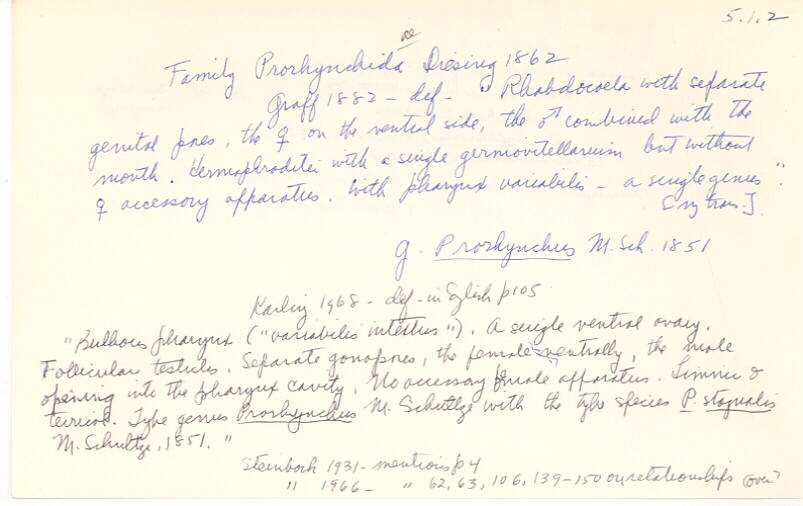 5.1.2
ae
Family Prorhynchida Diesing 1862
Graff 1882 - def - "Rhabdocoela with separate
genital pores, the ♀ on the ventral side, the ♂ combined with the
mouth. Hermaphroditei with a single germovitellarium but without
♀ accessory apparatus. With pharynx variabilis - a single genus".
[my trans.]
g. Prorhynchus M. Sch. 1851
Karling 1968 - def - in English p105
"Bulbous pharynx ("variabilis intextus"). A single ventral ovary.
Follicular testicles. Separate gonopores, the female ventrally, the male
opening into the pharynx cavity. No accessory female apparatus. Limnic &
terricol. Type genus Prorhynchus M. Schultze with the type species P. stagnalis
M. Schultze, 1851."
Steinbock 1931 - mentions p4
" 1966 - " 62, 63, 106, 139-150 on relationships over